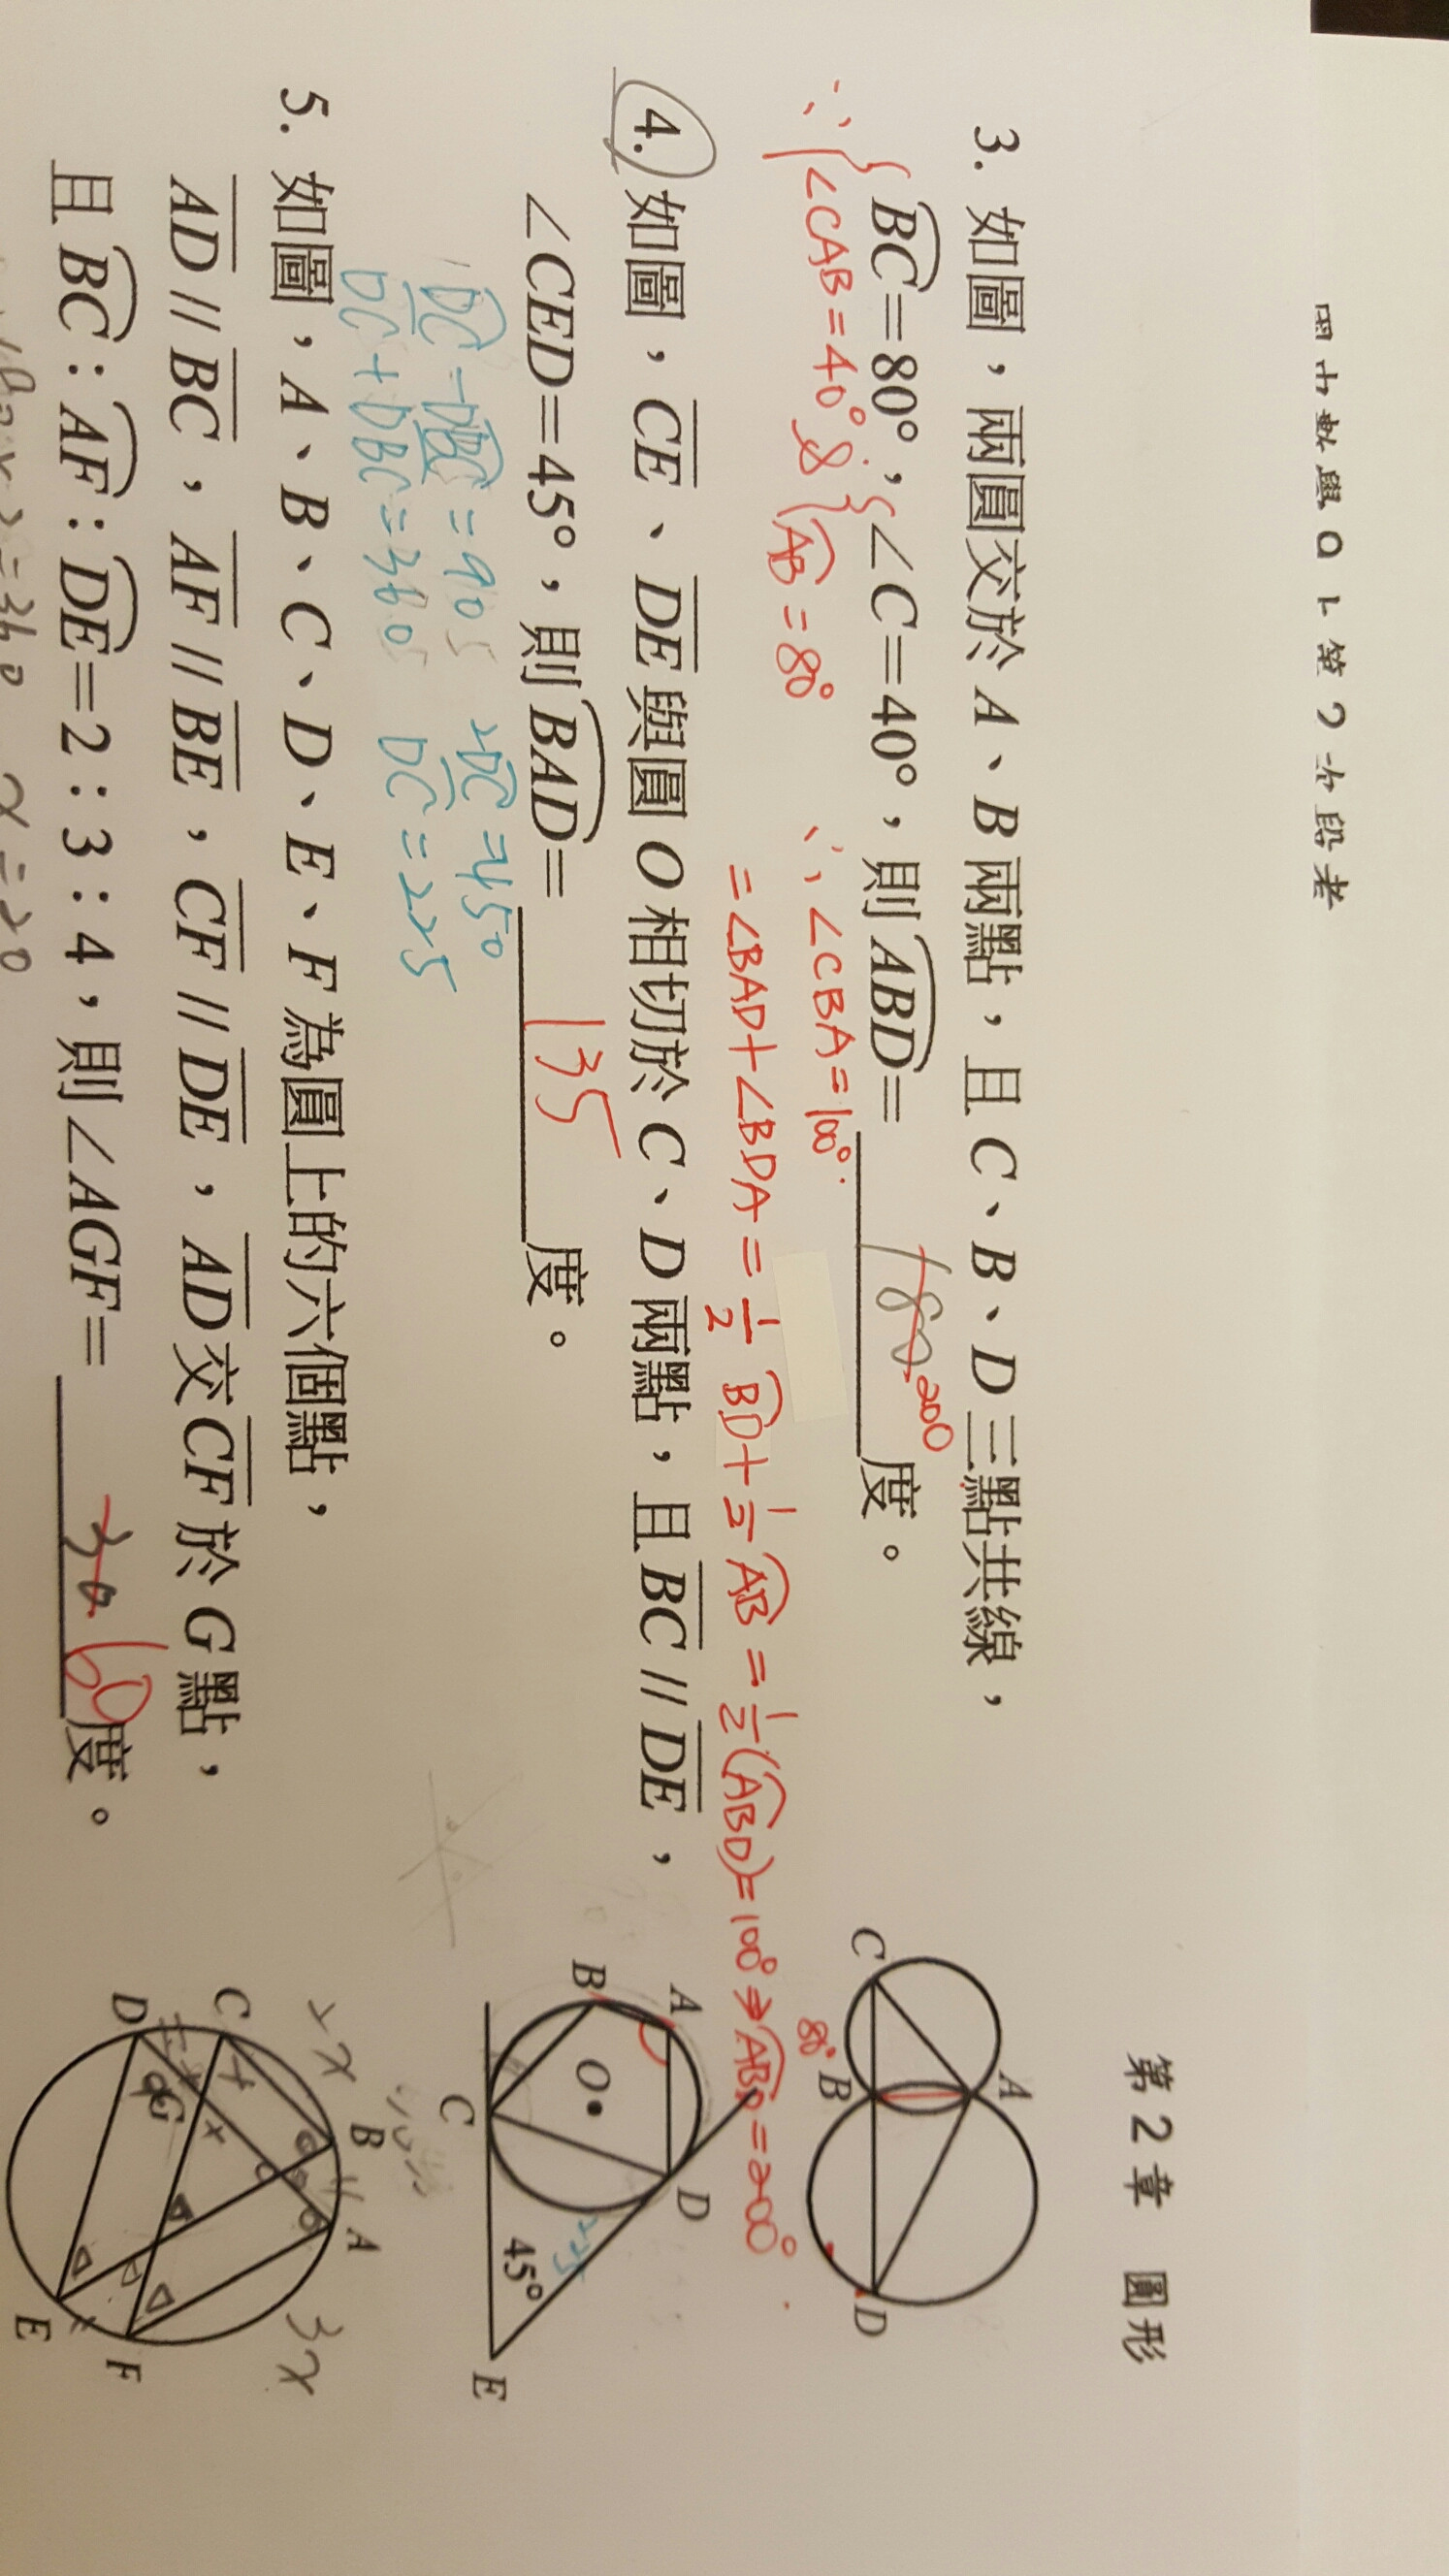 第2章 圓形
3. 如圖，兩圓交於 A、B 兩點，且 C、B、D 三點共線，
BC=80°，∠C=40°，則 ABD= 180 200 度。
∵ ∠CAB=40° & AB=80° ∴ ∠CBA=100°
=∠BAD+∠BDA=1/2 BD+1/2 AB=1/2(ABD)=100°⇒ABD=200°
C A B D 80°
4. 如圖，CE、DE 與圓 O 相切於 C、D 兩點，且 BC // DE，
∠CED=45°，則 BAD= 135 度。
DC-DBC=90 2DC=450
DC+DBC=360 DC=225
A B O C D 45° E
5. 如圖，A、B、C、D、E、F 為圓上的六個點，
AD // BC，AF // BE，CF // DE，AD 交 CF 於 G 點，
且 BC：AF：DE=2：3：4，則∠AGF= 30 60 度。
B A C D G E F 2x 3x